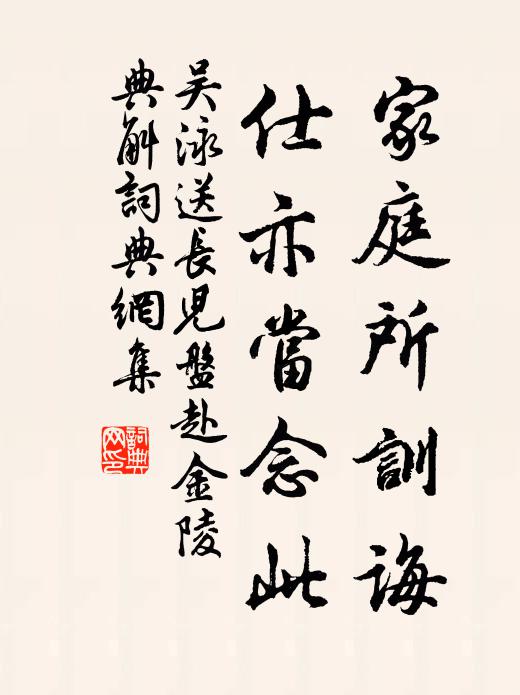 家庭所訓誨
仕亦當念此
吳泳送長児盤赴金陵
典斛詞典網集
詞典網印